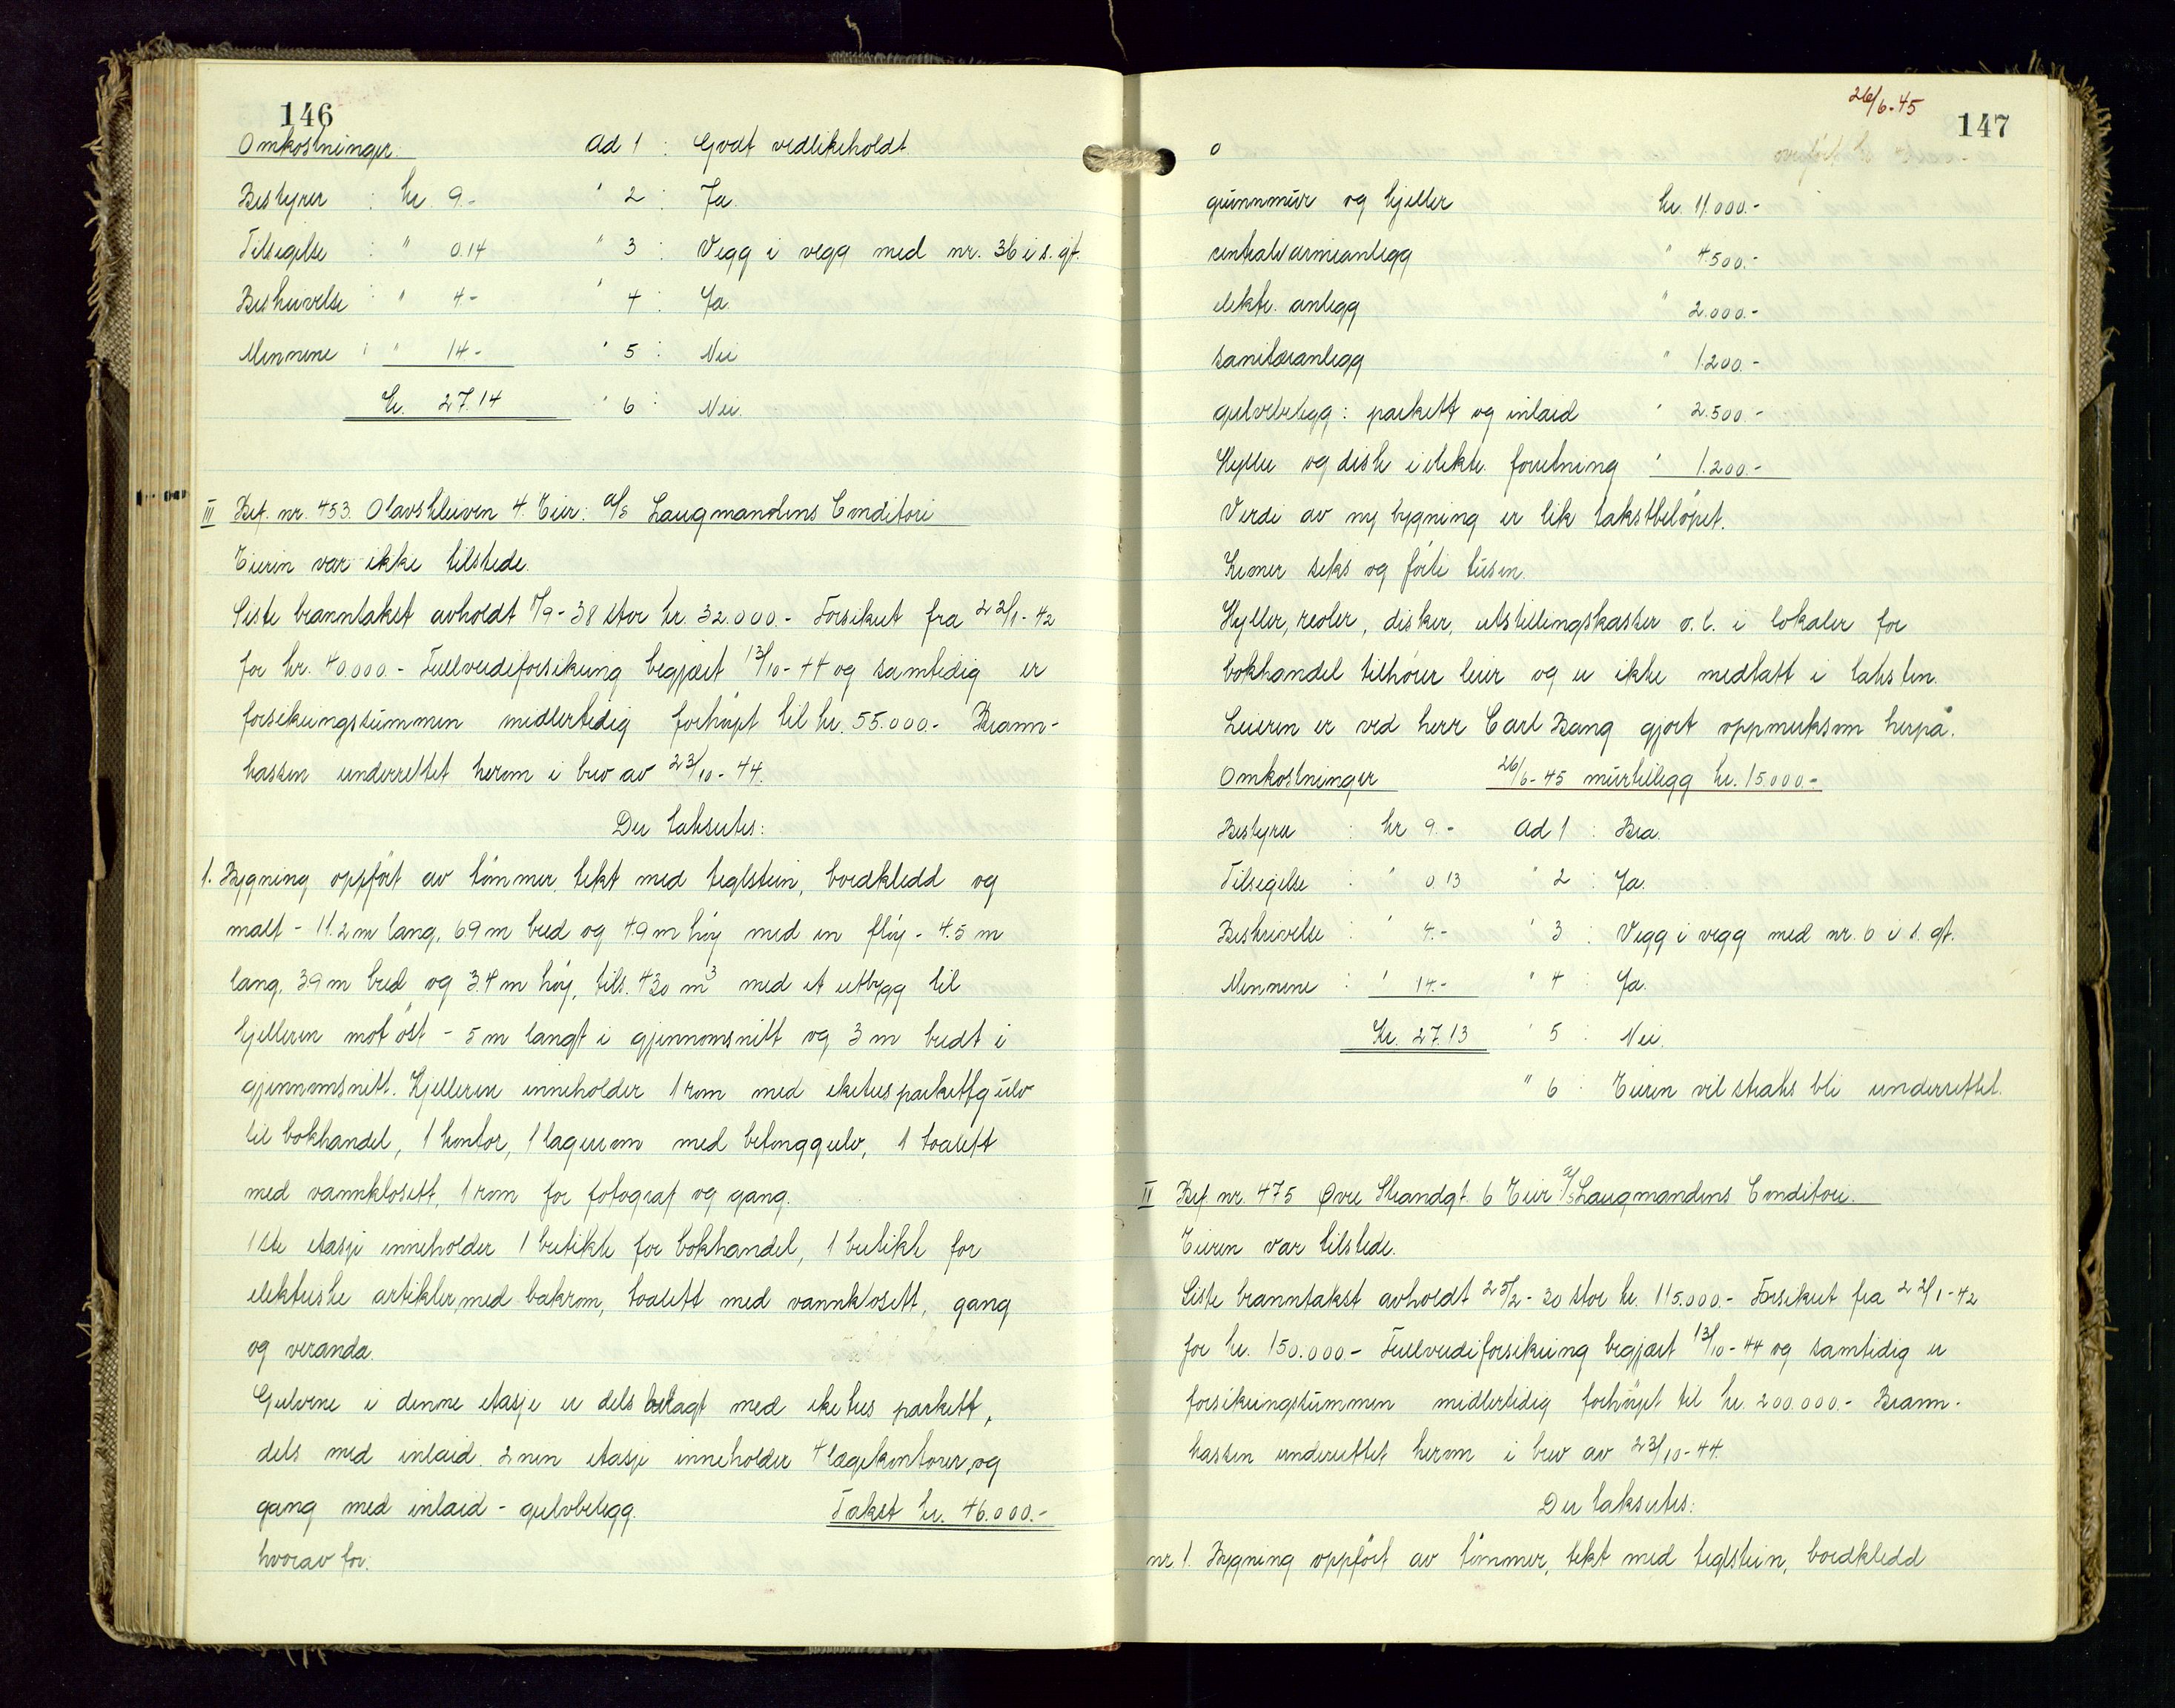 146
Omkostninger. Ad 1 : Godt vedlikeholdt
Bestyrer : kr. 9.- " 2 : Ja.
Tilsigelse : " 0.14 " 3 : Vegg i vegg med nr. 36 i s. gt.
Beskrivelse : " 4.- " 4 : Ja.
Mennene : " 14.- " 5 : Nei
Kr. 27.14 " 6 : Nei.
III Bef. nr. 453. Olavskleiven 4. Eier: A/S Laugmandens Conditori
Eieren var ikke tilstede.
Siste branntakst avholdt /9-38 stor kr. 32.000.- Forsikret fra 22/1-42
for kr. 40.000.- Fullverdiforsikring begjært 13/10-44 og samtidig er
forsikringssummen midlertidig forhøyet til kr. 55.000.- Brann-
kassen underrettet herom i brev av 23/10-44.
Der takseres:
1. Bygning oppført av tømmer, tekt med teglstein, bordkledd og
malt - 11.2 m lang, 6.9 m bred og 4.9 m høy med en fløy - 4.5 m
lang, 3.9 m bred og 3.4 m høy, tils. 430 m³ med et utbygg til
kjelleren mot øst - 5 m langt i gjennomsnitt og 3 m bredt i
gjennomsnitt. Kjelleren inneholder 1 rom med eketres parkettgulv
til bokhandel, 1 kontor, 1 lagerrom med betonggulv, 1 toalett
med vannklosett, 1 rom for fotograf og gang.
1ste etasje inneholder 1 butikk for bokhandel, 1 butikk for
elektriske artikler med bakrom, toalett med vannklosett, gang
og veranda.
Gulvene i denne etasje er dels belagt med eketres parkett,
dels med inlaid. 2nen etasje inneholder 4 lægekontorer, og
gang med inlaid - gulvbelegg. Takst kr. 46.000.-
hvorav for:
26/6-45
147
grunnmur og kjeller kr. 11.000.-
sentralvarmeanlegg " 4.500.-
elektr. anlegg " 2.000.-
sanitæranlegg " 1.200.-
gulvbelegg: parkett og inlaid " 2.500.-
Hyller og disk i elektr. forretning " 1.200.-
Verdi av ny bygning er lik takstbeløpet.
Kroner seks og førti tusen.
Hyller, reoler, disker, utstillingskasser o.l. i lokaler for
bokhandel tilhører leier og er ikke medtatt i taksten.
Leieren er ved herr Carl Bang gjort oppmerksom herpå.
Omkostninger 26/6-45 murtillegg kr. 15.000.-
Bestyrer : kr 9.- Ad 1 : Bra.
Tilsigelse : " 0.13 " 2 : Ja.
Beskrivelse : " 4.- " 3 : Vegg i vegg med nr. 6 i s. gt.
Mennene : " 14.- " 4 : Ja.
Kr. 27.13 " 5 : Nei.
" 6 : Eieren vil straks bli underrettet.
II Bef. nr. 475 Øvre Strandgt. 6 Eier A/S Laugmandens Conditori.
Eieren var tilstede.
Siste branntakst avholdt 25/2-30 stor kr. 115.000.- Forsikret fra 22/1-42
for kr. 150.000.- Fullverdiforsikring begjært 13/10-44 og samtidig er
forsikringssummen midlertidig forhøyet til kr. 200.000.- Brann-
kassen underrettet herom i brev av 23/10-44.
Der takseres:
nr 1. Bygning oppført av tømmer, tekt med teglstein, bordkledd